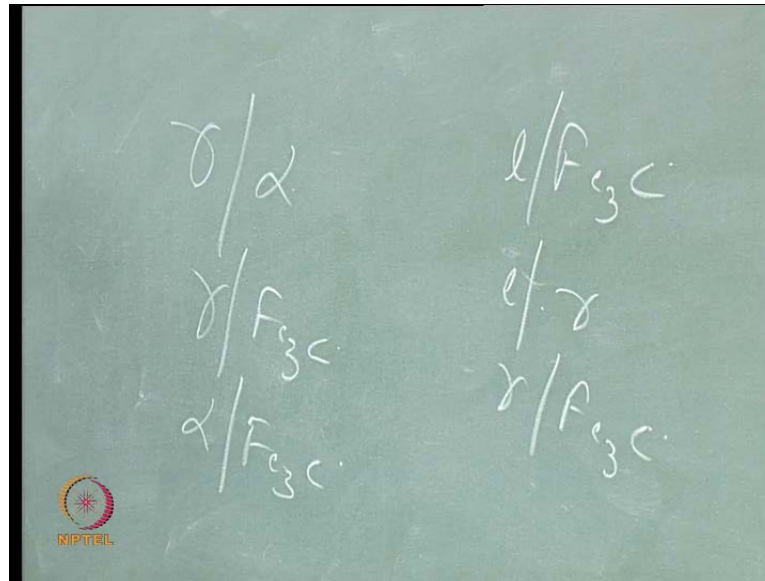 γ/α
γ/Fe3C
α/Fe3C
l/Fe3C
l/γ
γ/Fe3C
NPTEL